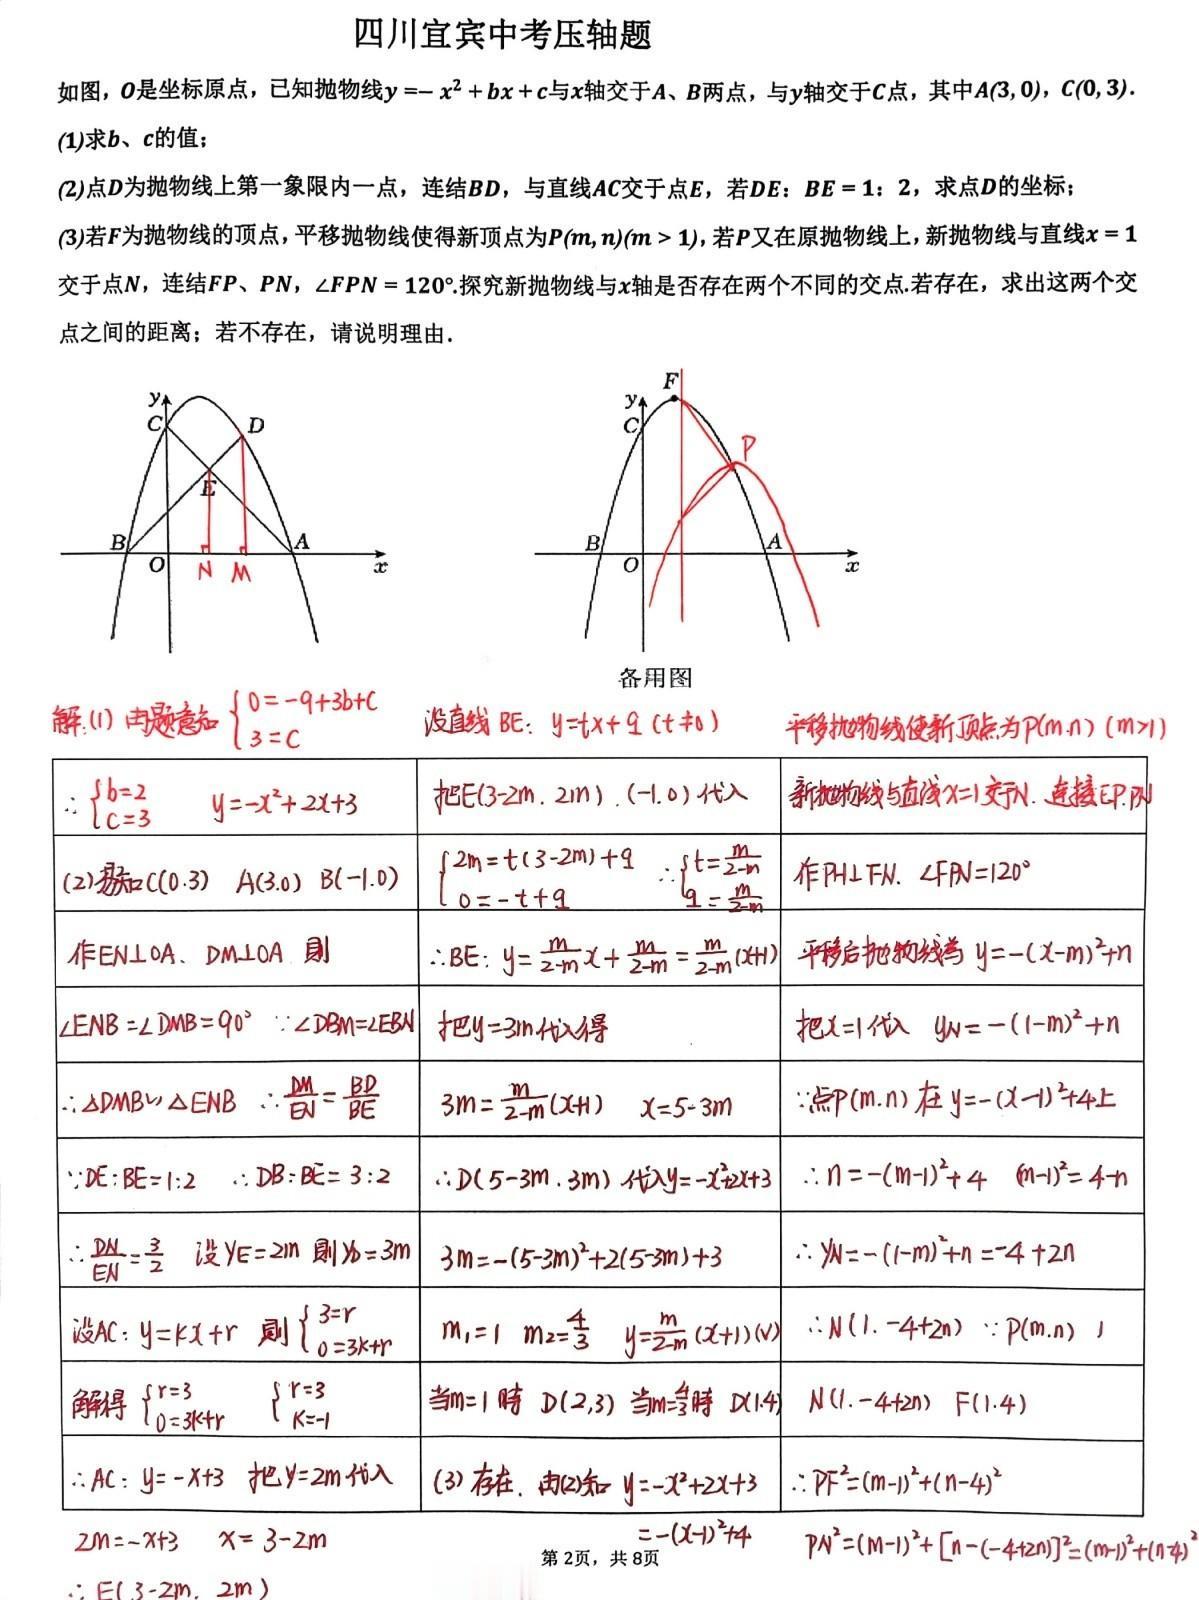 四川宜宾中考压轴题
如图，O是坐标原点，已知抛物线y =− x² + bx + c与x轴交于A、B两点，与y轴交于C点，其中A(3, 0)，C(0, 3).
(1)求b、c的值；
(2)点D为抛物线上第一象限内一点，连结BD，与直线AC交于点E，若DE：BE = 1：2，求点D的坐标；
(3)若F为抛物线的顶点，平移抛物线使得新顶点为P(m, n)(m > 1)，若P又在原抛物线上，新抛物线与直线x = 1
交于点N，连结FP、PN，∠FPN = 120°.探究新抛物线与x轴是否存在两个不同的交点.若存在，求出这两个交
点之间的距离；若不存在，请说明理由．
y C D E B O N M A x
F y C P B O A x
备用图
解:(1) 由题意知 {0=-9+3b+c
3=c
∴ {b=2
c=3 y=-x²+2x+3
(2)易知C(0.3) A(3.0) B(-1.0)
作EN⊥OA、DM⊥OA 则
∠ENB=∠DMB=90° ∵∠DBM=∠EBN
∴△DMB∽△ENB ∴DM/EN=BD/BE
∵DE:BE=1:2 ∴DB:BE=3:2
∴DN/EN=3/2 设YE=2m 则YD=3m
设AC: y=kx+r 则 {3=r
0=3k+r
解得 {r=3
0=3k+r {r=3
k=-1
∴AC: y=-x+3 把y=2m代入
2m=-x+3 x=3-2m
∴E(3-2m. 2m)
设直线BE: y=tx+q (t≠0)
把E(3-2m.2m).(-1.0)代入
{2m=t(3-2m)+q
0=-t+q ∴{t=m/2-m
q=m/2-m
∴BE: y=m/2-m x+m/2-m=m/2-m(x+1)
把y=3m代入得
3m=m/2-m(x+1) x=5-3m
∴D(5-3m.3m)代入y=-x²+2x+3
3m=-(5-3m)²+2(5-3m)+3
m₁=1 m₂=4/3 y=m/2-m(x+1)(√)
当m=1时 D(2,3) 当m=4/3时 D(1.4)
(3)存在. 由(2)知 y=-x²+2x+3
=-(x-1)²+4
平移抛物线使新顶点为P(m.n) (m>1)
新抛物线与直线x=1交于N. 连接EP.PN
作PH⊥FN. ∠FPN=120°
平移后抛物线为 y=-(x-m)²+n
把x=1代入 yN=-(1-m)²+n
∵点P(m.n)在y=-(x-1)²+4上
∴n=-(m-1)²+4 (m-1)²=4-n
∴yN=-(1-m)²+n=-4+2n
∴N(1.-4+2n) ∵P(m.n)
N(1.-4+2n) F(1.4)
∴PF²=(m-1)²+(n-4)²
PN²=(m-1)²+[n-(-4+2n)]²=(m-1)²+(n-4)²
第 2页，共 8页